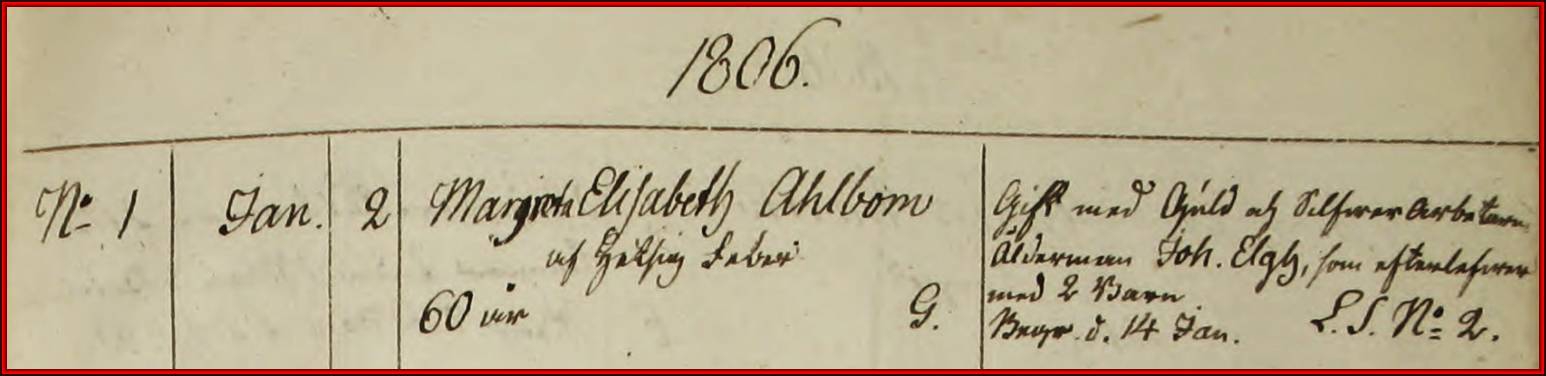 1806.
No. 1 Jan. 2 Margreta Elisabeth Ahlbom
af Hetsig Feber
60 år G.
Gift med Guld och Silfwer Arbetaren
Ålderman Joh. Elgh, som efterlefwer
med 2 Barn
Begr. d. 14 Jan. L. S. No. 2.